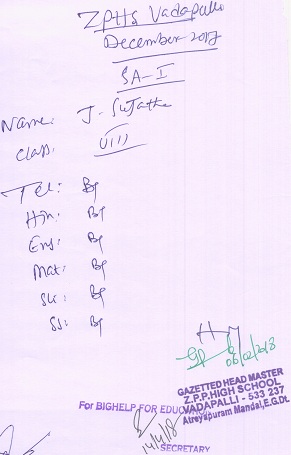 ZPHS Vadapalli
December-2017
SA-I
Name: J. Sujatha
Class: VIII
Tel:
Hin:
Eng:
Mat:
Sci:
SS:
06/02/2018
GAZETTED HEAD MASTER
Z.P.P.HIGH SCHOOL
VADAPALLI - 533 237
Atreyapuram Mandal,E.G.Dt.
For BIGHELP FOR EDUC
14/4/18
SECRETARY